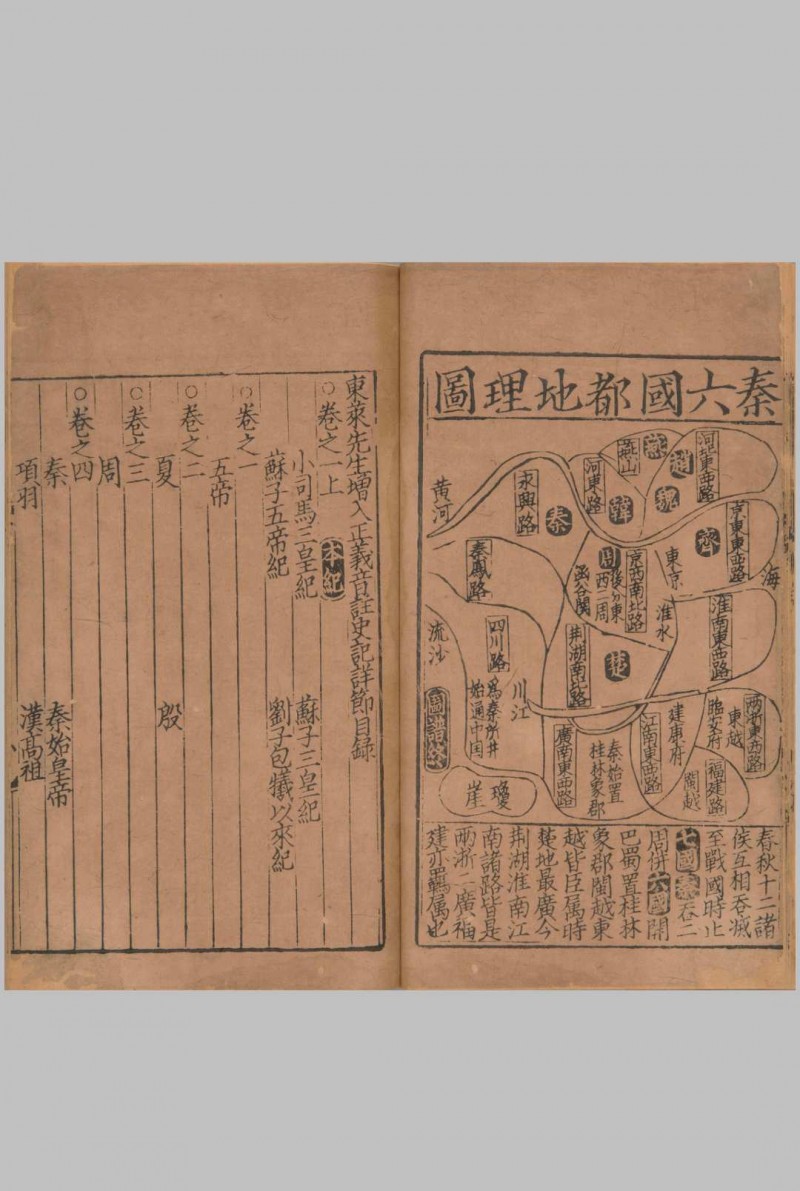 秦六國都地理圖
河北東西路
趙
燕
燕山
魏
韓
河東路
永興路
秦
黃河
齊
京東東西路
海
東京
京西南北路
周
後分東
西二周
函谷關
秦鳳路
淮水
淮南東西路
四川路
流沙
荆湖南北路
楚
川江
爲秦所并
始通中国
兩浙東西路
東越
臨安府
建康府
江南東西路
福建路
閩越
秦始置
桂林象郡
廣南東西路
瓊
崖
春秋十二諸
侯互相吞滅
至戰國時止
七國秦吞二
周併六國開
巴蜀置桂林
象郡閩越東
越皆臣属時
楚地最廣今
荆湖淮南江
南諸路皆是
兩浙二廣福
建亦羈属也
東萊先生增入正義音註史記詳節目錄
○卷之一上 本紀
小司馬三皇紀 蘇子三皇紀
蘇子五帝紀 劉子包犧以來紀
○卷之一
五帝
○卷之二
夏 殷
○卷之三
周
○卷之四
秦 秦始皇帝
項羽 漢高祖